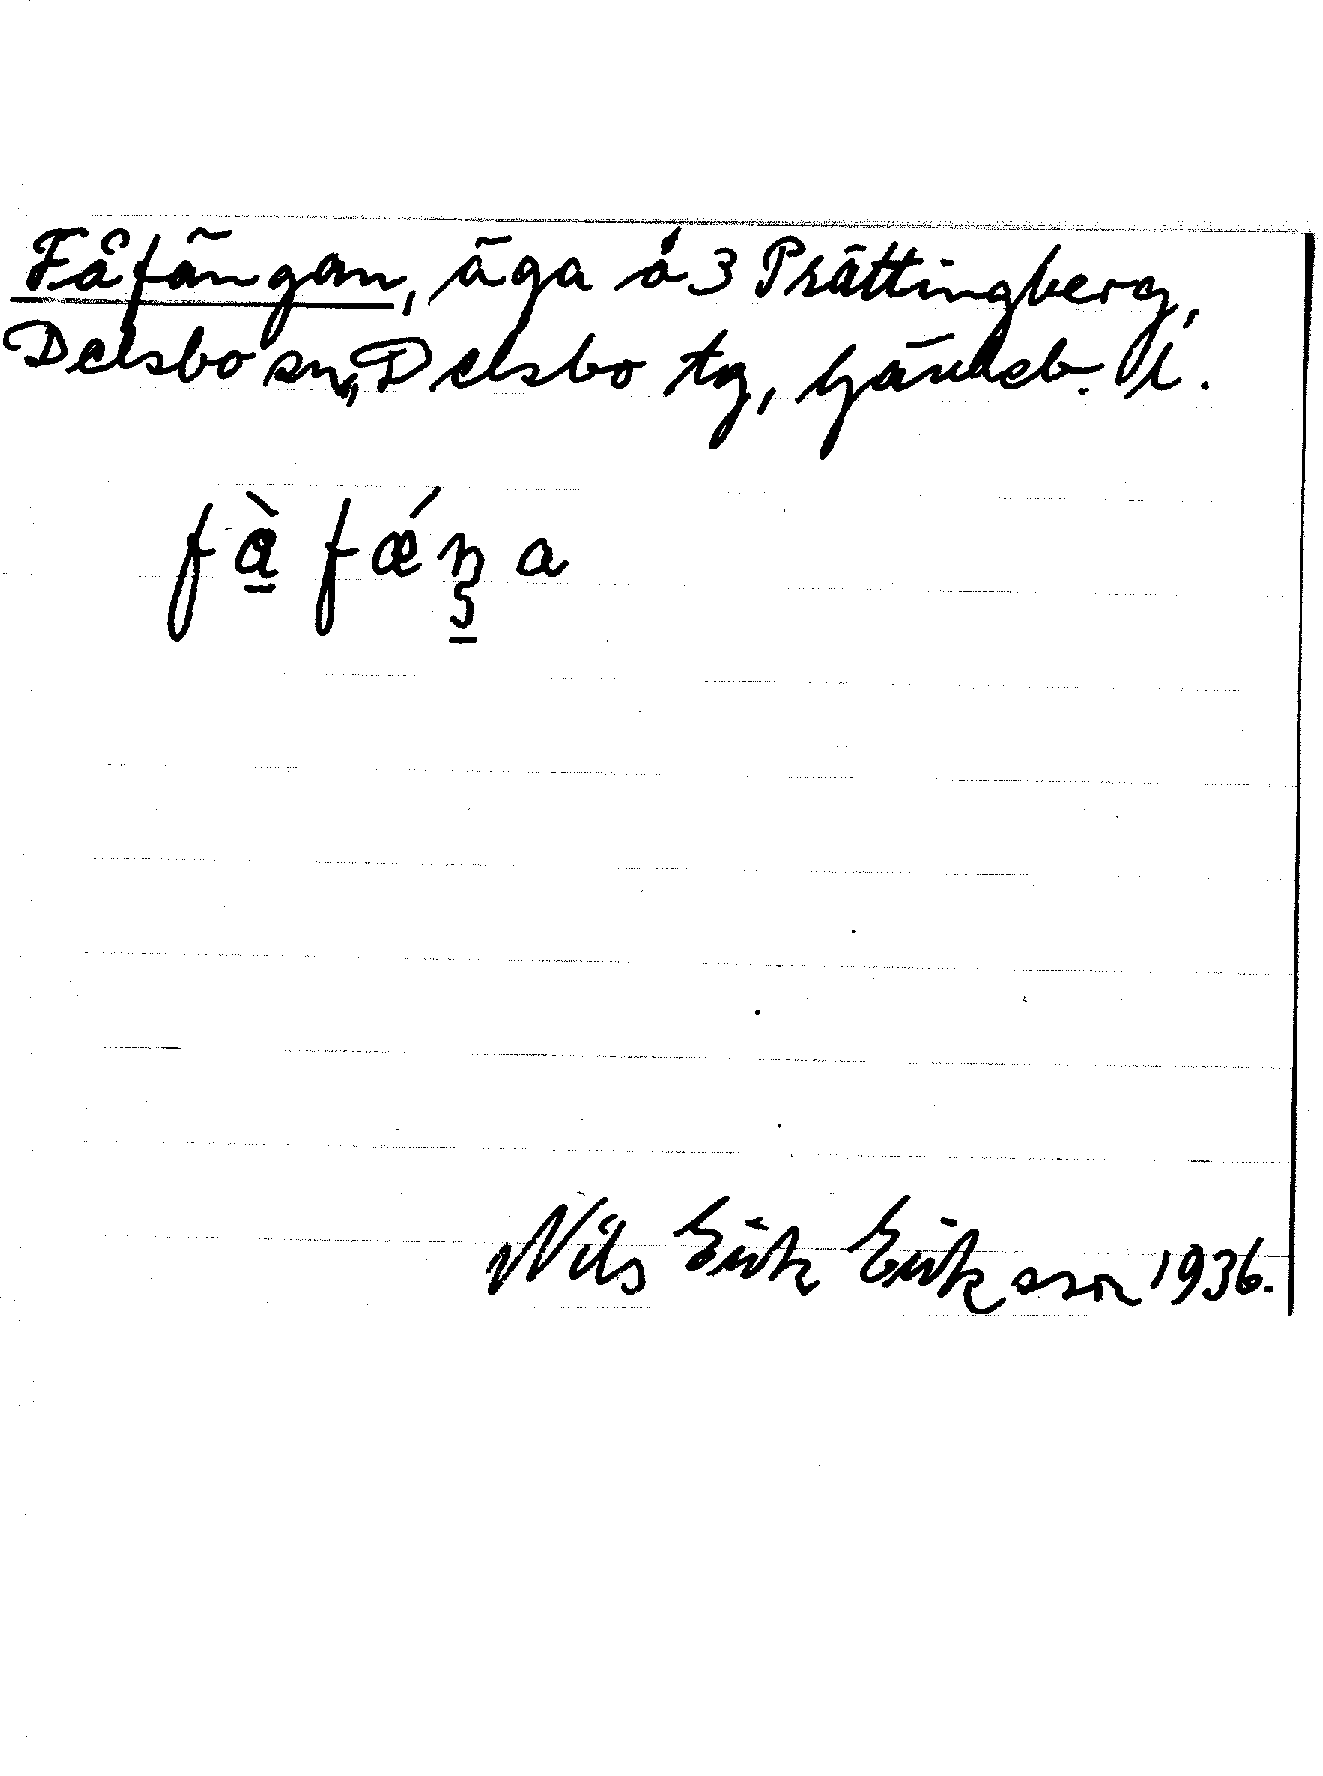 Fåfängan, äga å 3 Prästtingberg,
Delsbo sn, Delsbo tg, Gävleb. l.
fàfǽŋa
Nils Erik Eriksson 1936.